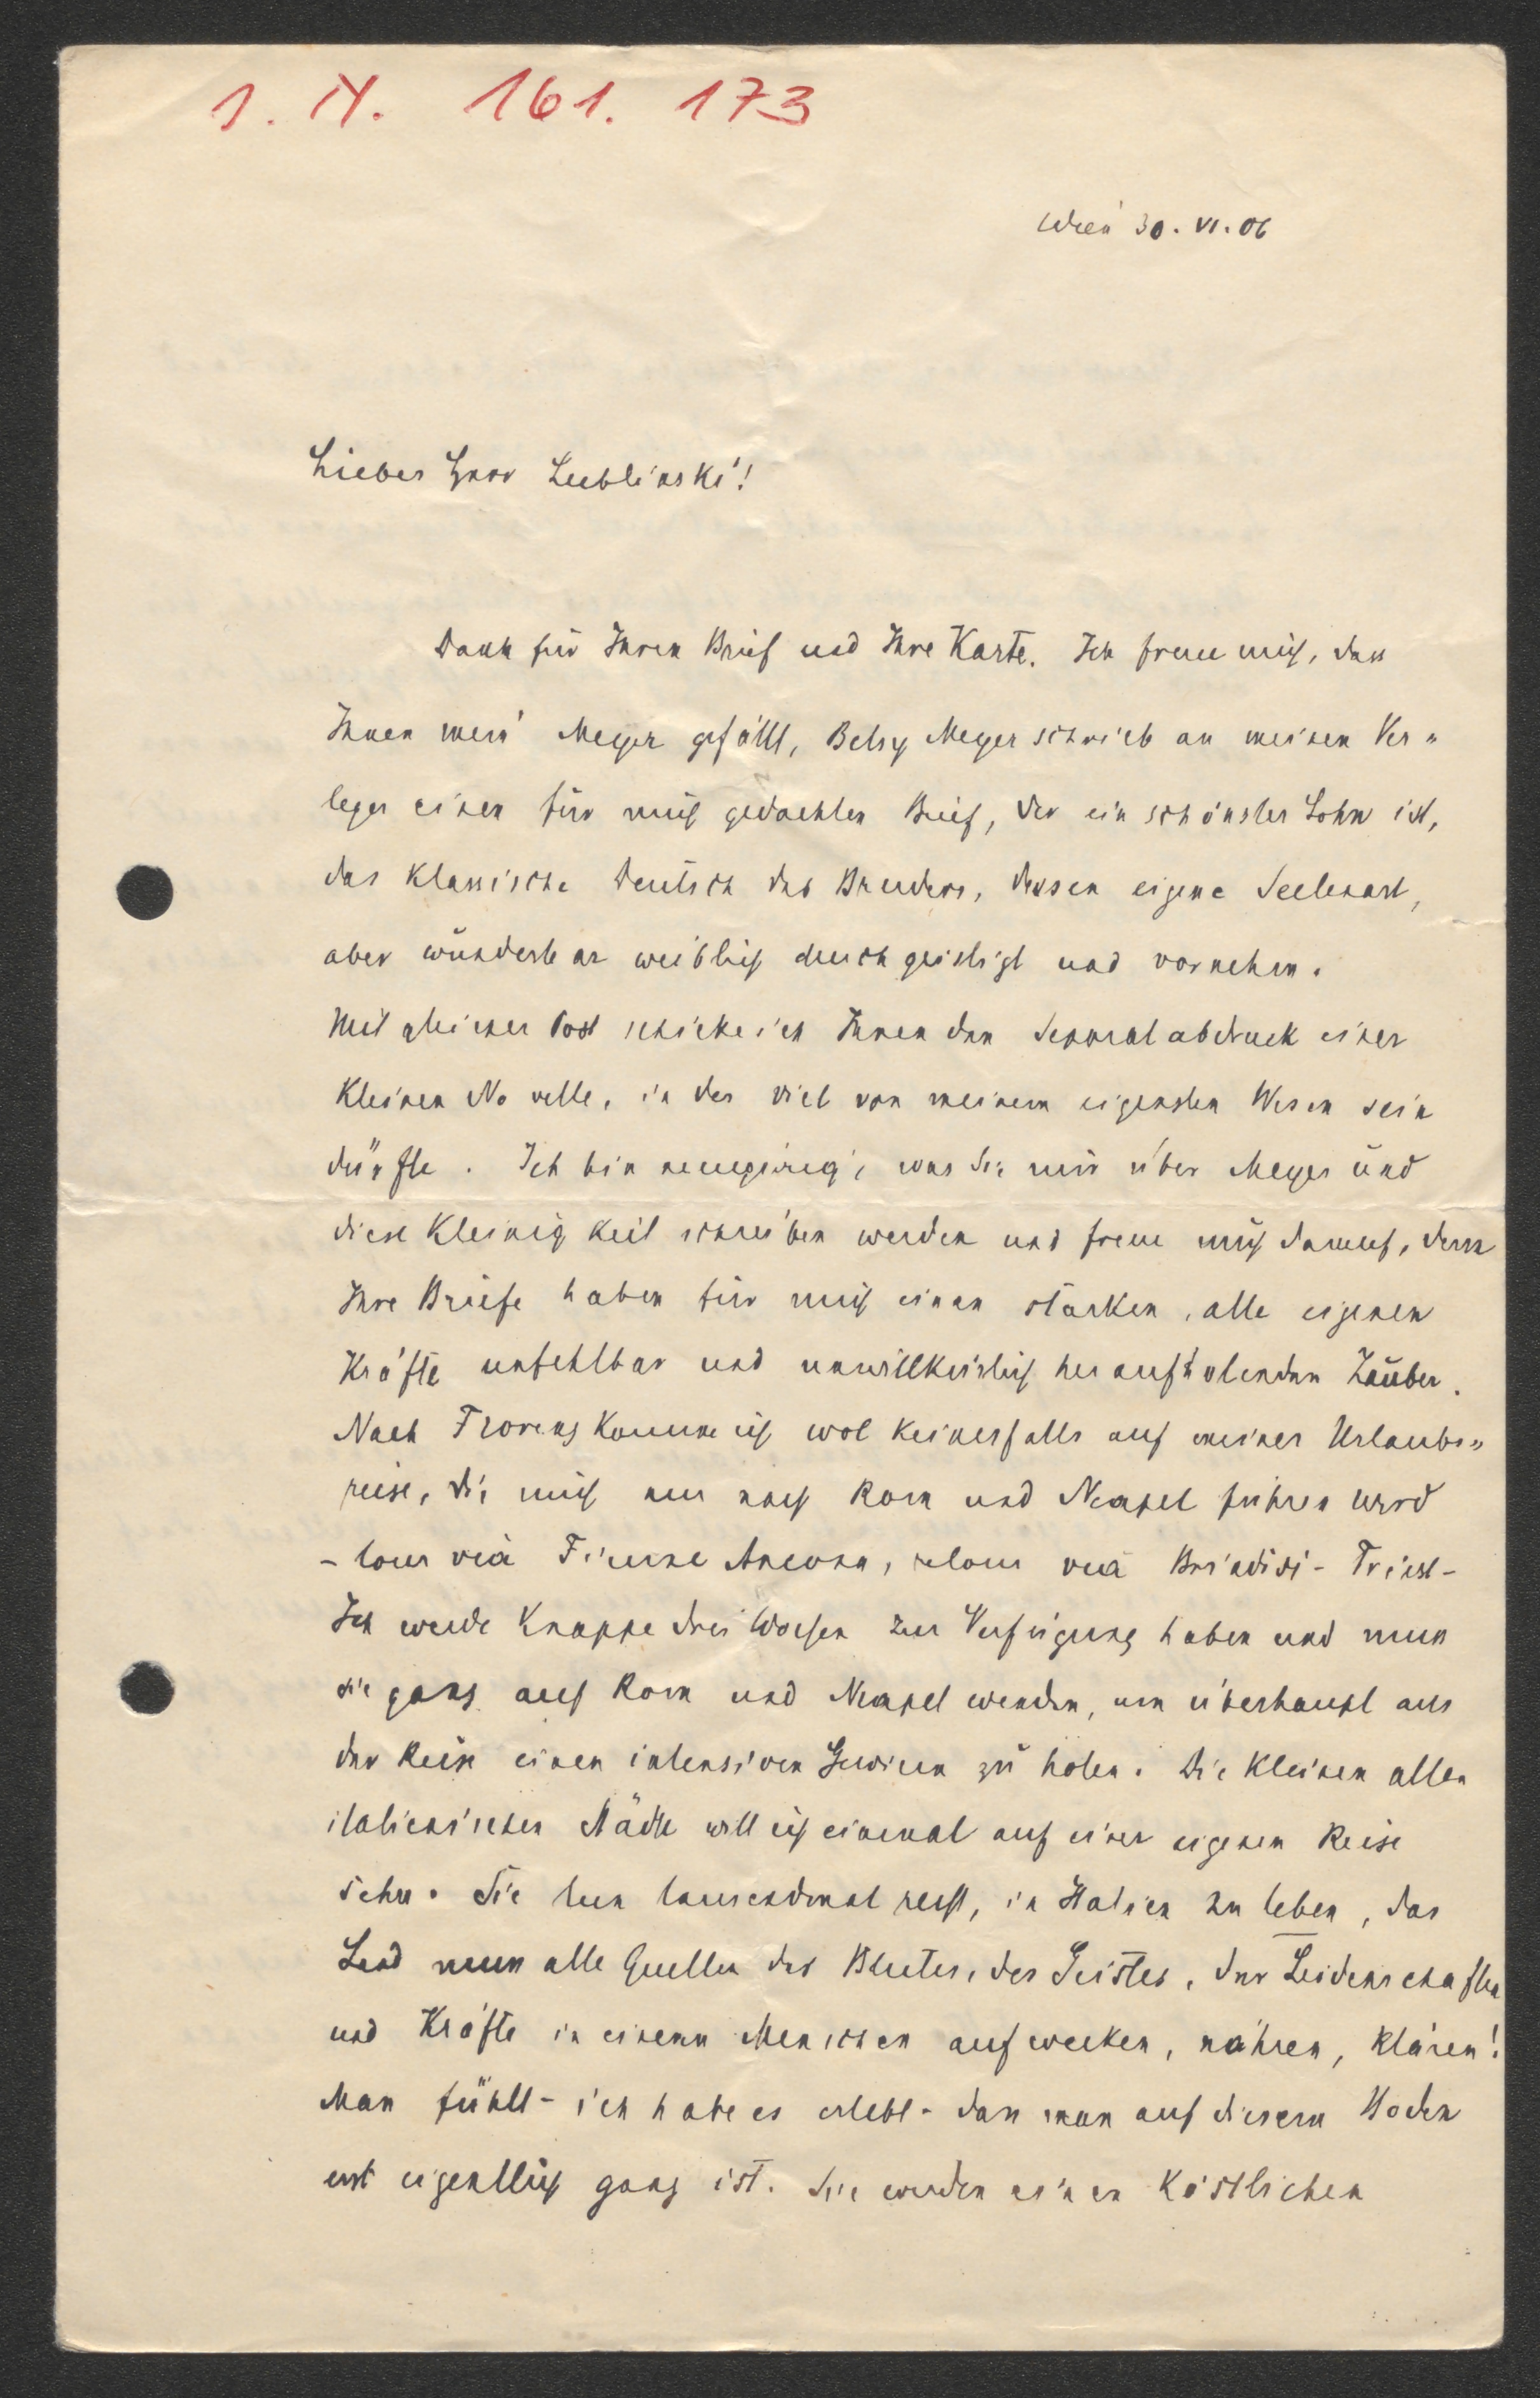 1. N. 161. 173
Wien 30. VI. 06
Lieber Herr Lublinski!
Dank für Ihren Brief und Ihre Karte. Ich freue mich, dass
Ihnen mein Meyer gefällt, Betsy Meyer schrieb an meinen Ver=
leger einen für mich gedachten Brief, der ein schönster Lohn ist,
das klassische Deutsch des Bruders, dessen eigene Seelenart,
aber wunderbar weiblich durchgeistigt und vornehm.
Mit gleicher Post schicke ich Ihnen den Separatabdruck einer
kleinen Novelle, in der viel von meinem eigensten Wesen sein
dürfte. Ich bin neugierig, was Sie mir über Meyer und
diese Kleinigkeit schreiben werden und freue mich darauf, denn
Ihre Briefe haben für mich einen starken, alle eigenen
Kräfte unfehlbar und unwillkürlich heraufholenden Zauber.
Nach Florenz komme ich wol keinesfalls auf meiner Urlaubs=
reise, die mich nur nach Rom und Neapel führen wird
- tour via Fiume Ancona, retour via Brindisi - Triest -
Ich werde knappe drei Wochen zur Verfügung haben und muss
sie ganz auf Rom und Neapel wenden, um überhaupt aus
der Reise einen intensiven Gewinn zu holen. Die kleinen alten
italienischen Städte will ich einmal auf einer eigenen Reise
sehn. Sie tun tausendmal recht, in Italien zu leben, das
Land muss alle Quellen des Blutes, des Geistes, der Leidenschaften
und Kräfte in einem Menschen aufwecken, nähren, klären!
Man fühlt - ich habe es erlebt - dass man auf diesem Boden
erst eigentlich ganz ist. Sie werden einen köstlichen